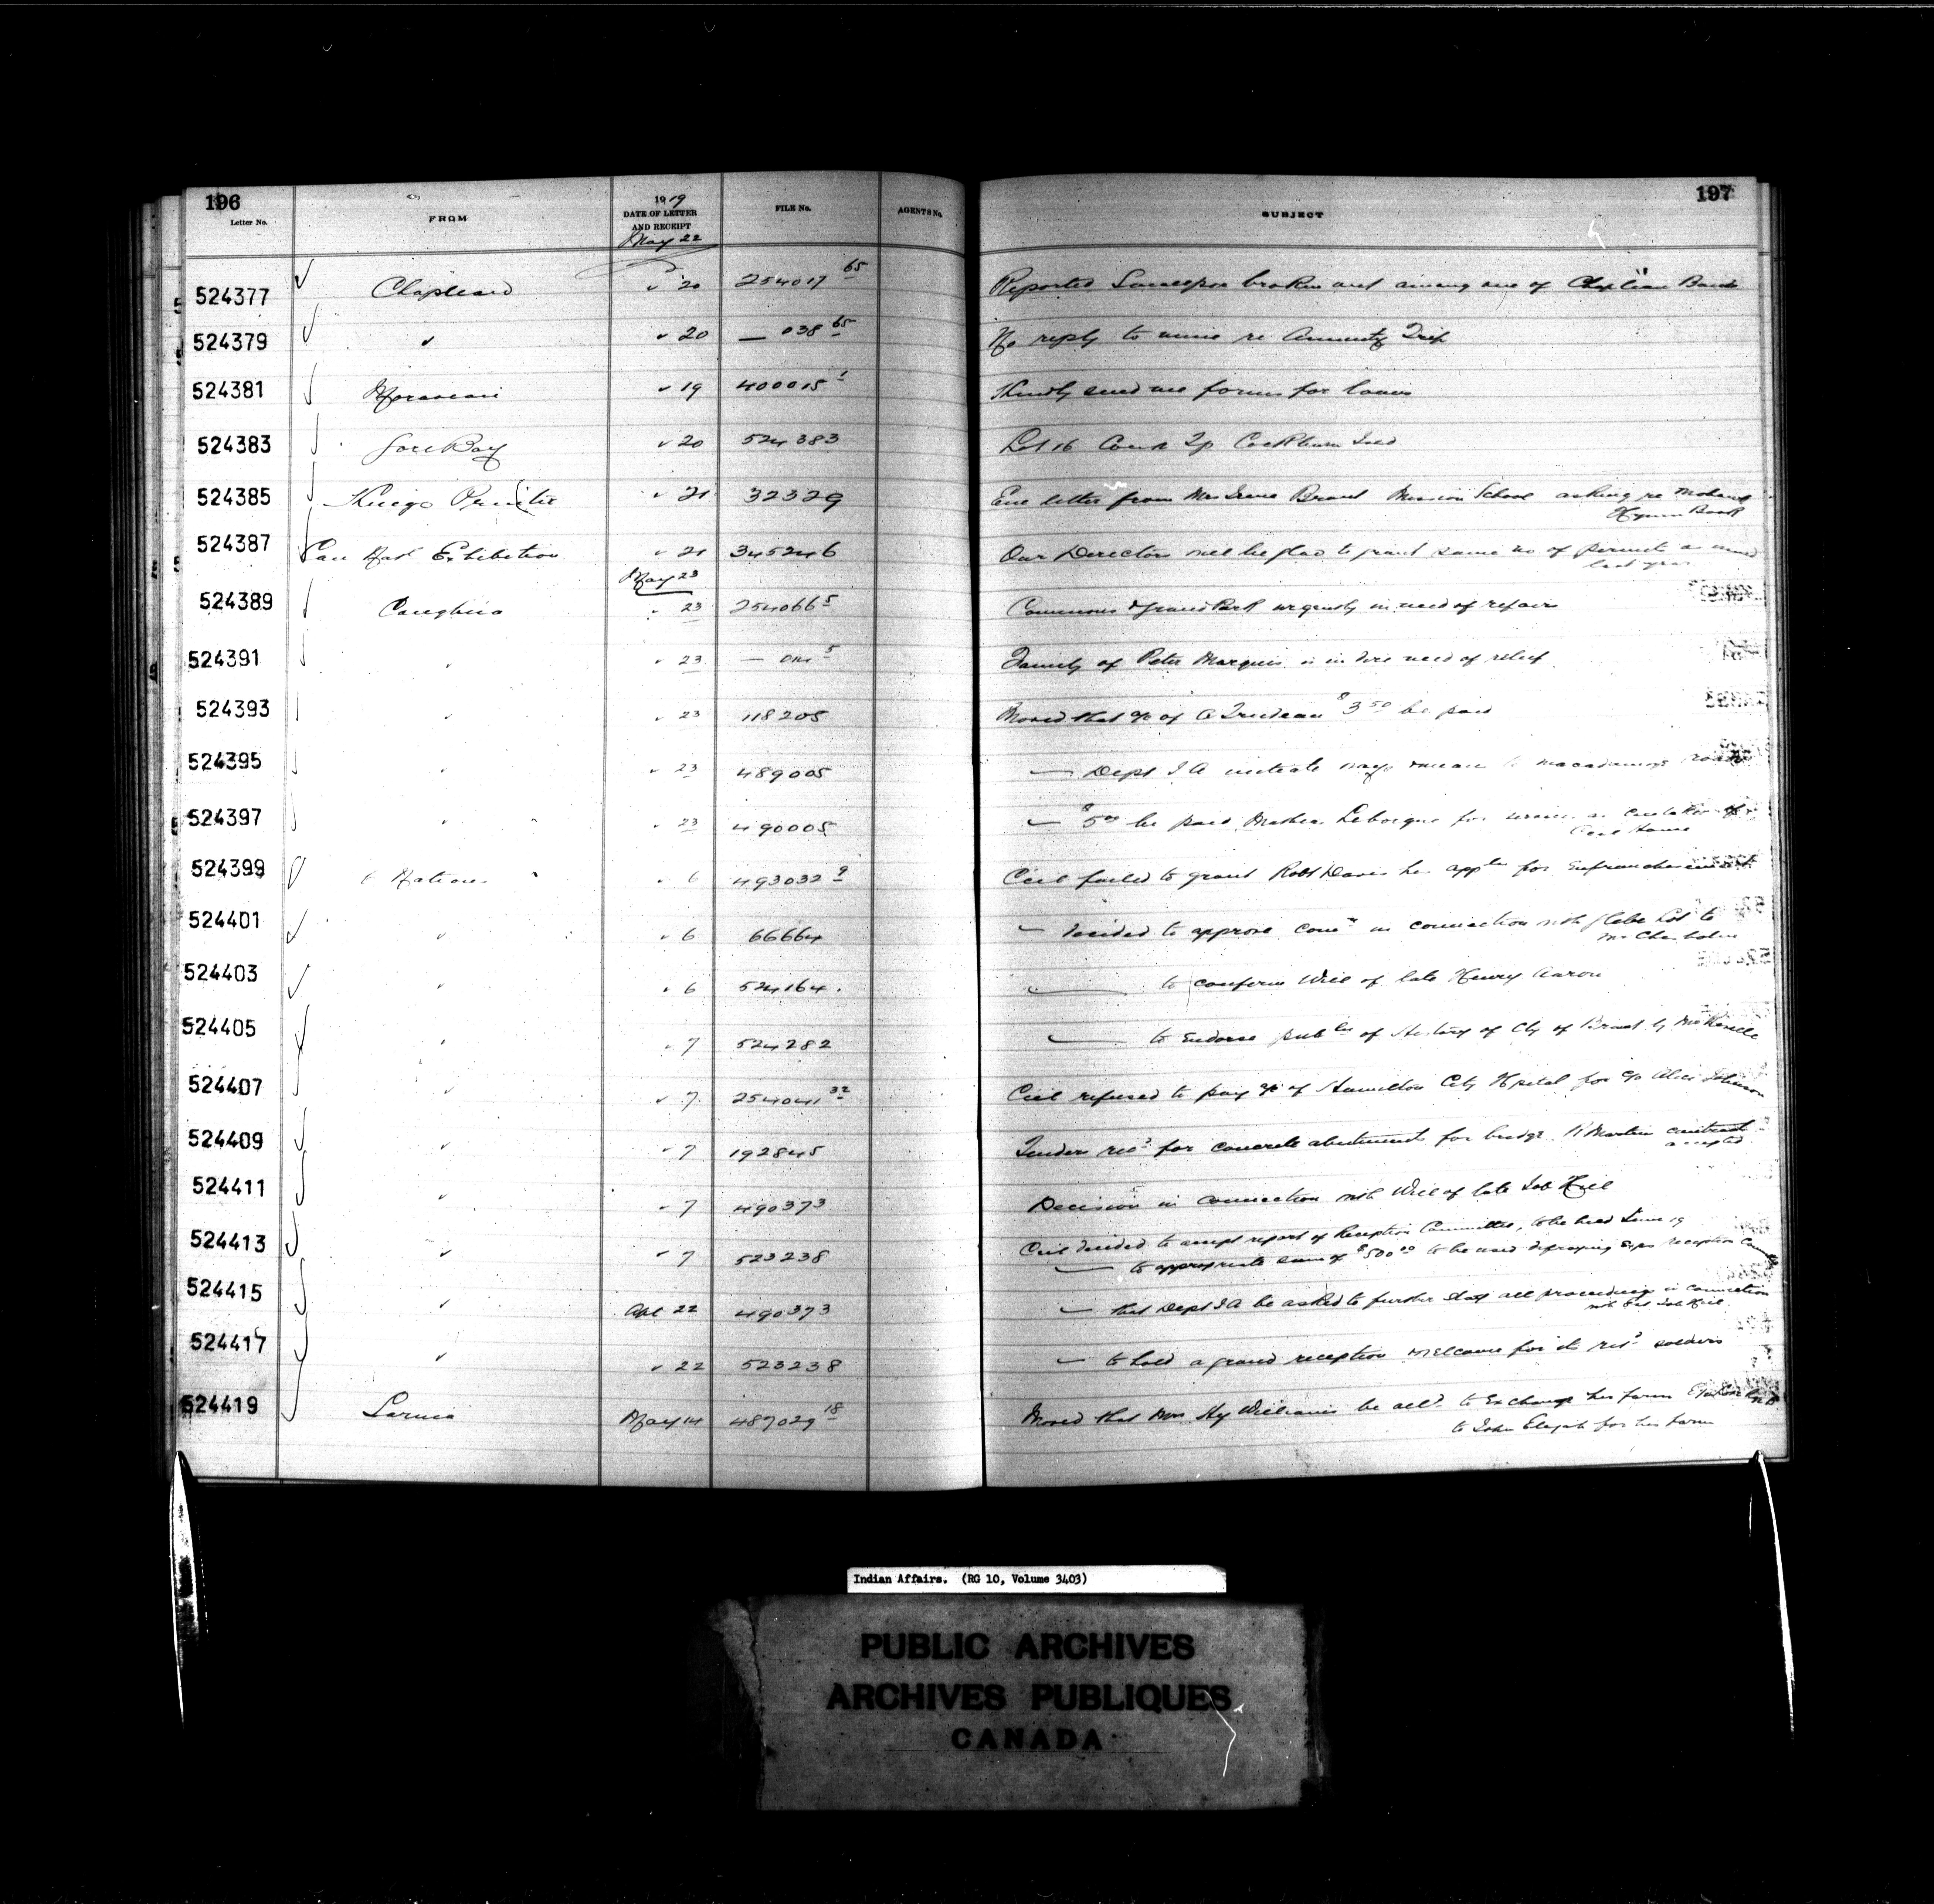 196
197
Letter No. FROM 1919 DATE OF LETTER AND RECEIPT FILE No. AGENTS No. SUBJECT
May 22
524377 Chapleau " 20 254017 65 Reported broken out among one of Chapleau Band
524379 " " 20 — 038 65 No reply to mine re Annuity Trip
524381 Moravian " 19 400015 1 Kindly send me forms for loans
524383 Gore Bay " 20 524383 Lot 16 Con Tp Cockburn Isld
524385 Kings Printer " 21 32329 Enc letter from Mrs Irene Brant Mission School asking re Mohawk
Hymn Book
524387 Can Nat Exhibition " 21 345246 Our Director will be glad to grant same no of permits as
last year
May 23
524389 Caughna " 23 254066 5 Commons & Grand Park urgently in need of repair
524391 " " 23 — 5 Family of Peter Marquis is in dire need of relief
524393 " " 23 118205 Moved that a/c of A Trudeau $3 50 be paid
524395 " " 23 489005 — Dept I A ways & means to macadamize roads
524397 " " 23 490005 — $5 00 be paid for as caretaker of
524399 6 Nations " 6 493032 9 Ccil failed to grant Robt Davis his appln for Enfranchisement
524401 " " 6 66664 — decided to approve in connection with Glebe Lot to
524403 " " 6 524164. — to confirm Will of late Henry Aaron
524405 " " 7 524282 — to Endorse publn of History of Cty of Brant by
524407 " " 7 254041 32 Ccil refused to pay a/c of Hamilton City Hpital for c/o Alice Johnson
524409 " " 7 192845 Tender recd for concrete abutment for bridge. Martin contract
accepted
524411 " " 7 490373 Decision in connection with Will of late Job Hill
524413 " " 7 523238 Ccil decided to accept report of Reception Committee, to be held June 19
— to appropriate sum of $500 00 to be used defraying Exps reception
524415 " Apl 22 490373 — that Dept I A be asked to further stay all proceedings in connection
with Est Job Hill
524417 " " 22 523238 — to hold a grand reception & welcome for its retd soldiers
524419 Sarnia May 14 487029 18 Moved that Mrs Hy Williams be alld to Exchange her farm
to John Elijah for his farm
Indian Affairs. (RG 10, Volume 3403)
PUBLIC ARCHIVES
ARCHIVES PUBLIQUES
CANADA